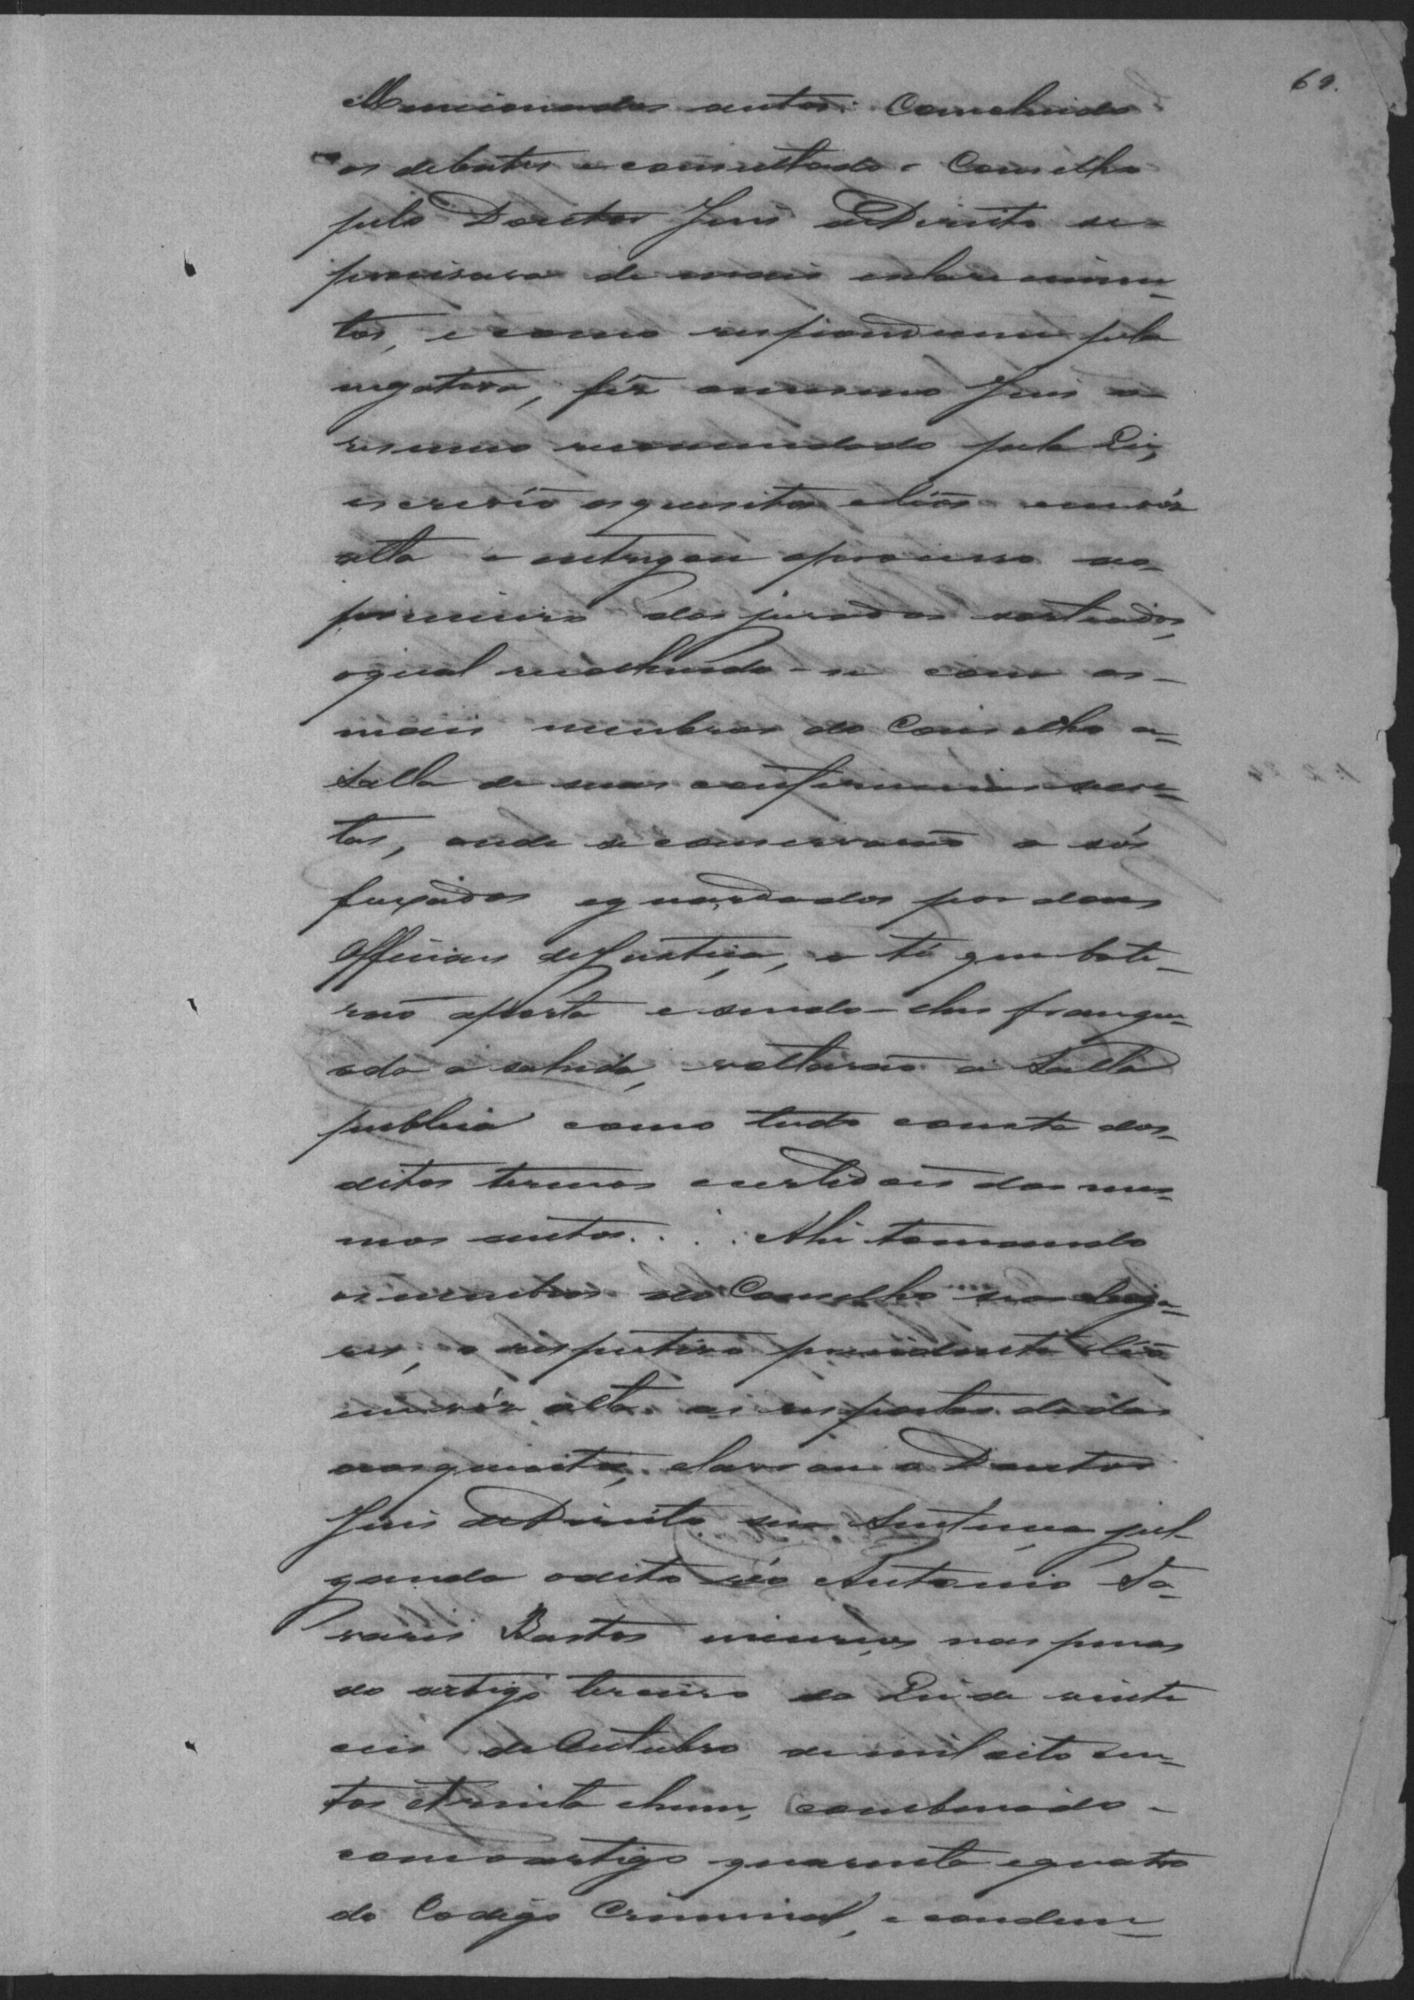 69.
Mencionados autos. Concluidos
os debates e consultado o Conselho
pelo Doutor Juis de Direito se
precisava de mais esclarecimen-
tos, e como respondecem pela
negativa, fêz omesmo Juis o
resumo recomendado pela Lei,
escrevêo osquesitos eléos em vós
alta e entregou oprocesso ao
primeiro dos jurados sorteados,
oqual recolhendo-se com os
mais membros do Conselho a
Salla de suas conferencias secre-
tas, onde se conservarão a sós
fexados eguardados por dous
Officiaes deJustiça, a té que bate-
rão aporta e sendo-lhes franque-
ada a sahida, voltarão a Salla
publica como tudo consta dos
ditos termos ecertidoes dos mes-
mos autos. Ahi tomando
os membros do Conselho seus luga-
res, o respectivo presidente léo
em vóz alta as respostas dadas
aos quesitos, elavrou o Doutor
Juis de Direito sua Sentença jul-
gando odito réo Antonio Ta-
vares Bastos incurso nas penas
do artigo terceiro da Lei de vinte
eseis de Outubro de mil oito cen-
tos etrinta ehum, combinado
com o artigo quarenta equatro
do Codigo Criminal, e condem-